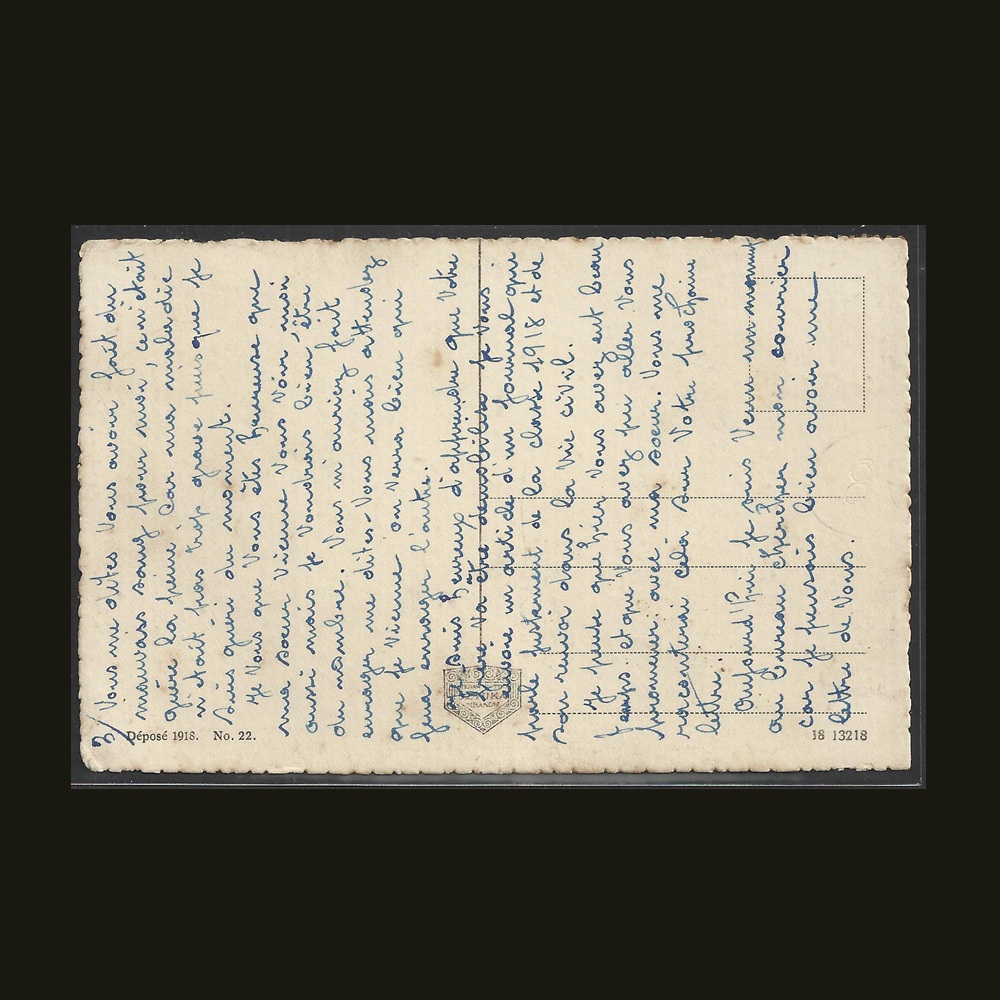 3/ Vous me dites Vous avoir fait du
mauvais sang pour moi, ce n'était
guère la peine car ma maladie
n'était pas trop grave puisque je
suis guéri du moment.
Je Vous que Vous êtes heureuse que
ma soeur Vienne Vous Voir moi
aussi mais je Voudrais bien être
du nombre. Vous m'auriez fait
enrager me dites-Vous mais attendez
que je Vienne on Verra bien qui
fera enrager l'autre.
Je suis heureux d'apprendre que Votre
père Va être démobilisé je Vous
envoie un article d'un journal qui
parle justement de la classe 1918 et de
son renvoi dans la Vie civil.
Je pense qu'hier Vous avez eut beau
temps et que Vous avez pu aller Vous
promener avec ma soeur. Vous me
raconterez celà sur Votre prochaine
lettre.
Aujourd'hui je suis Venu
au bureau chercher mon courrier
car je pensais bien avoir une
lettre de Vous.
Déposé 1918. No. 22.
18 13218